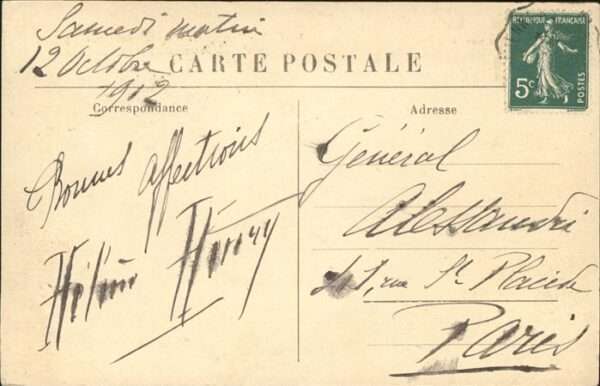 Samedi matin
12 Octobre
1912
CARTE POSTALE
Correspondance
Adresse
RÉPUBLIQUE FRANÇAISE
5c
POSTES
Bonnes affections
Henry
Général
Alessandri
rue St Placide
Paris